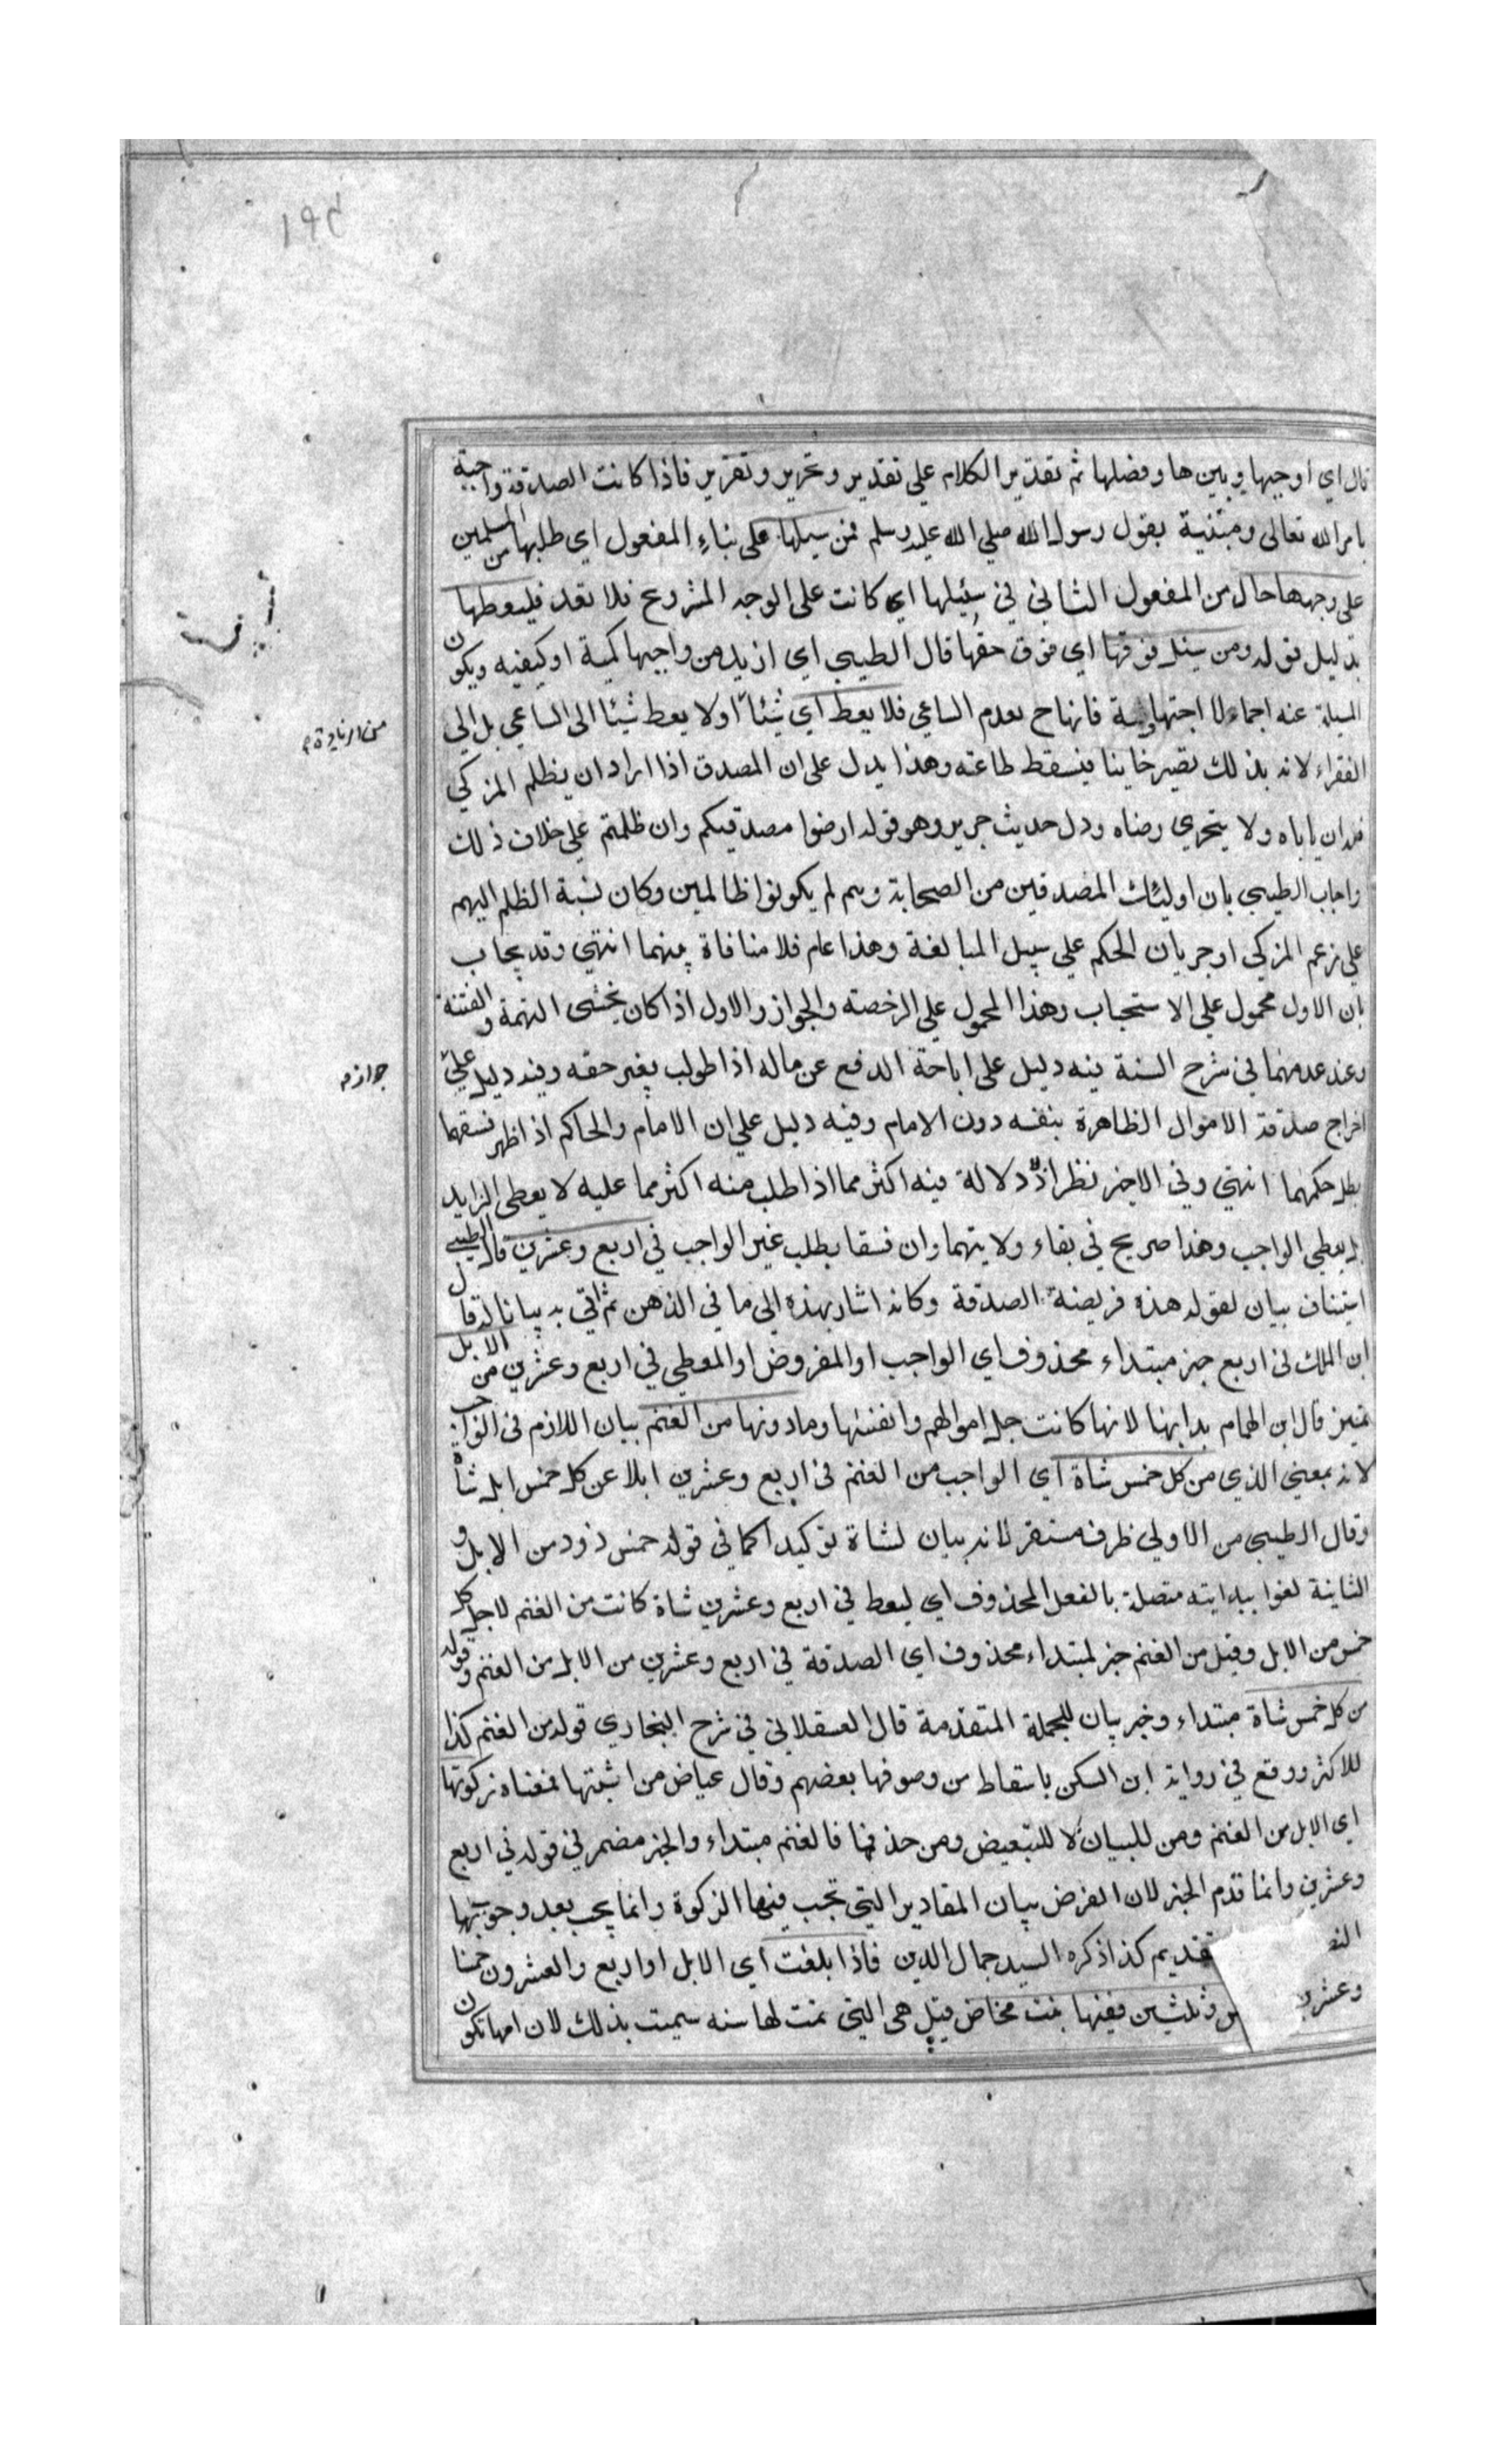 قال اي اوجبها وبين ها وفضلها ثم تقدير الكلام علي تقدير وتحرير وتقرير فاذا كانت الصدقة واجبة
بامر الله تعالى ومبتنية بقول رسول الله صلي الله عليه وسلم فمن سيلها على بناء المفعول اي طلبها من المسلمين
على وجهها حال من المفعول الثاني في سئيلها اي كانت على الوجه المشروع فلا تعد فليعطها
بدليل قوله ومن سئل فوقها اي فوق حقها قال الطيبي اي ازيد من واجبها كمية او كيفية ويكون
المسيلة عنه اجماعا لا اجتهادية فانها ح بعدم الساعي فلا يعط اي شيئا او لا يعط شيئا الى الساعي بل الي
من الزيادة
الفقراء لانه بذلك يصير خاينا فيسقط طاعته وهذا يدل على ان المصدق اذا اراد ان يظلم المزكي
فله ان ياباه ولا يتحري رضاه ودل حديث جرير وهو قوله ارضوا مصدقيكم وان ظلمتم علي خلاف ذلك
واجاب الطيبي بان اوليئك المصدقين من الصحابة وهم لم يكونوا ظالمين وكان نسبة الظلم اليهم
علي زعم المزكي او جريان الحكم علي سبيل المبالغة وهذا عام فلا منافاة بينهما انتهي وقد يجاب
بان الاول محمول علي الاستحباب وهذا المحمول علي الرخصته والجواز والاول اذا كان يخشى التهمة والفتنة
وعند عدمهما في شرح السنة فيه دليل على اباحة الدفع عن ماله اذا طولب بغير حقه وفيه دليل علي
جواز
اخراج صدقة الاموال الظاهرة بنفسه دون الامام وفيه دليل علي ان الامام والحاكم اذ اظهر فسقهما
بطل حكمهما انتهي وفي الاخير نظر اذ لا دلالة فيه اكثر مما اذا طلب منه اكثر مما عليه لا يعطى الزايد
بل يعطي الواجب وهذا صريح في بقاء ولايتهما وان فسقا بطلب غير الواجب في اربع وعشرين قال الطيبي
استيناف بيان لقوله هذه فريضة الصدقة وكانه اشار بهذه الي ما في الذهن ثم اتي به بيانا له قال
ابن الملك في اربع خبر مبتداء محذوف اي الواجب او المفروض او المعطي في اربع وعشرين من الابل
تمييز قال ابن الهمام بدا بها لانها كانت جل اموالهم وانفسها وما دونها من الغنم بيان اللازم في الواجب
لانه بمعني الذي من كل خمس شاة اي الواجب من الغنم في اربع وعشرين ابلا عن كل خمس ابل شاة
وقال الطيبي من الاولي ظرف مستقر لانه بيان لشاة توكيدا كما في قوله خمس ذود من الابل و
الثانية لغوا ببدايته متصلة بالفعل المحذوف اي ليعط في اربع وعشرين شاة كانت من الغنم لاجل كل
خمس من الابل وقيل من الغنم خبر لمبتداء محذوف اي الصدقة في اربع وعشرين من الابل من الغنم وقوله
من كل خمس شاة مبتداء وخبر بيان للجملة المتقدمة قال العسقلاني في شرح البخاري قوله من الغنم كذا
للاكثر ووقع في رواية ابن السكن باسقاط من وصوفها بعضهم وقال عياض من اثبتها فمعناه زكوتها
اي الابل من الغنم ومن للبيان لا للتبعيض ومن حذفها فالغنم مبتداء والخبر مضمر في قوله في اربع
وعشرين وانما قدم الخبر لان الغرض بيان المقادير التي تجب فيها الزكوة وانما يجب بعد وجوبها
قديم كذا ذكره السيد جمال الدين فاذا بلغت اي الابل او اربع والعشرون خمسا
وعشرين وثلثين ففيها بنت مخاض قيل هي التي تمت لها سنه سميت بذلك لان امها تكون